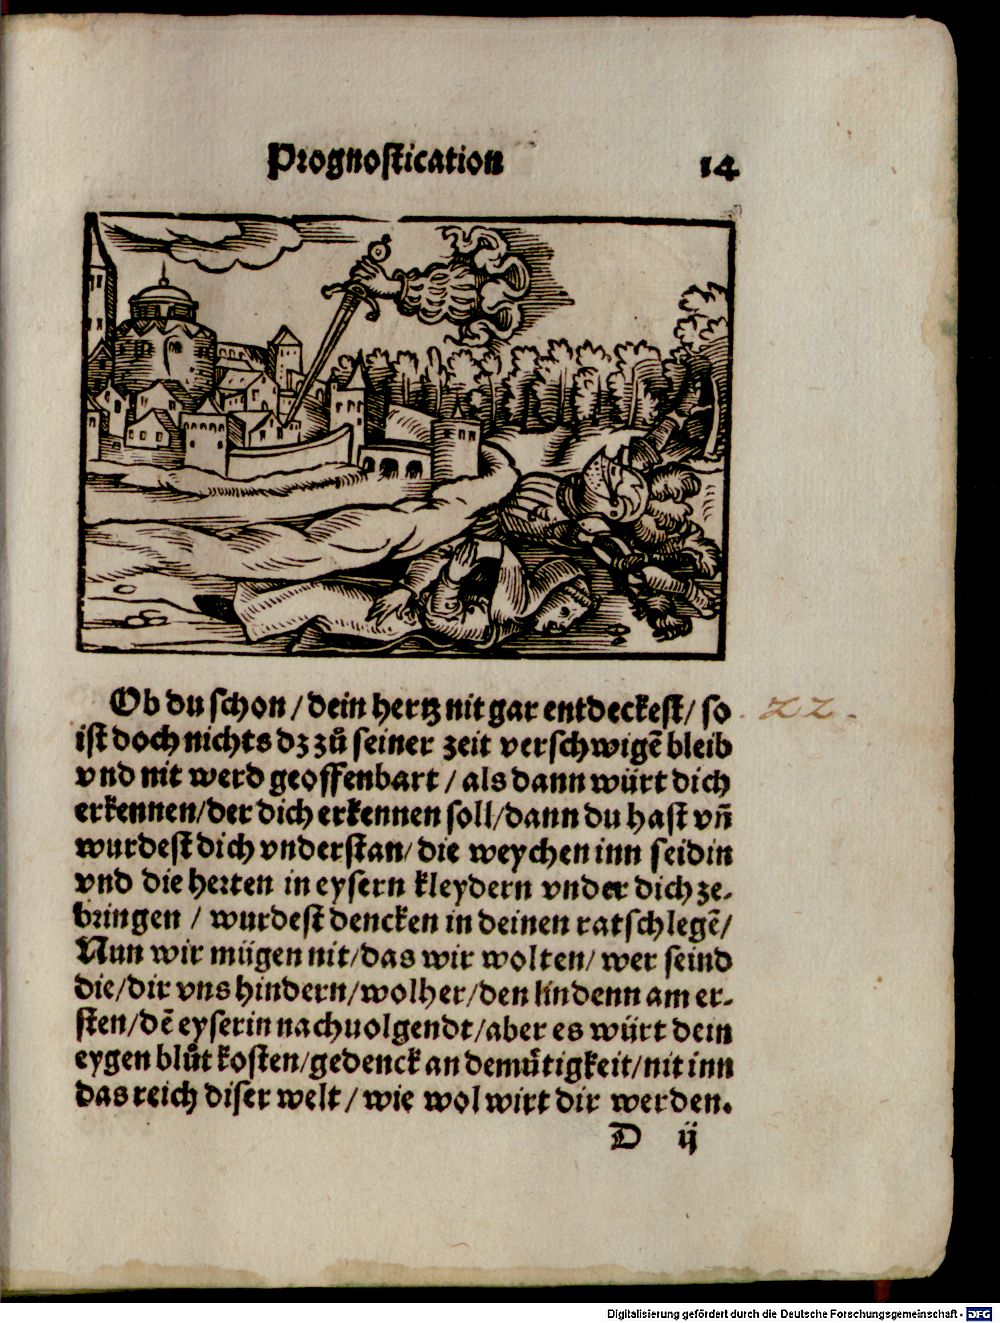 Prognostication 14
Ob du schon / dein hertz nit gar entdeckest / so
22.
ist doch nichts dz zů seiner zeit verschwigē bleib
vnd nit werd geoffenbart / als dann würt dich
erkennen/der dich erkennen soll/dann du hast vñ
wurdest dich vnderstan/ die weychen inn seidin
vnd die herten in eysern kleydern vnder dich ze-
bringen / wurdest dencken in deinen ratschlegē/
Nun wir mügen nit/das wir wolten/ wer seind
die/dir vns hindern/wolher/den lindenn am er-
sten/dē eyserin nachuolgendt/aber es würt dein
eygen blůt kosten/gedenck an demůtigkeit/nit inn
das reich diser welt / wie wol wirt dir werden.
D ij
Digitalisierung gefördert durch die Deutsche Forschungsgemeinschaft - DFG